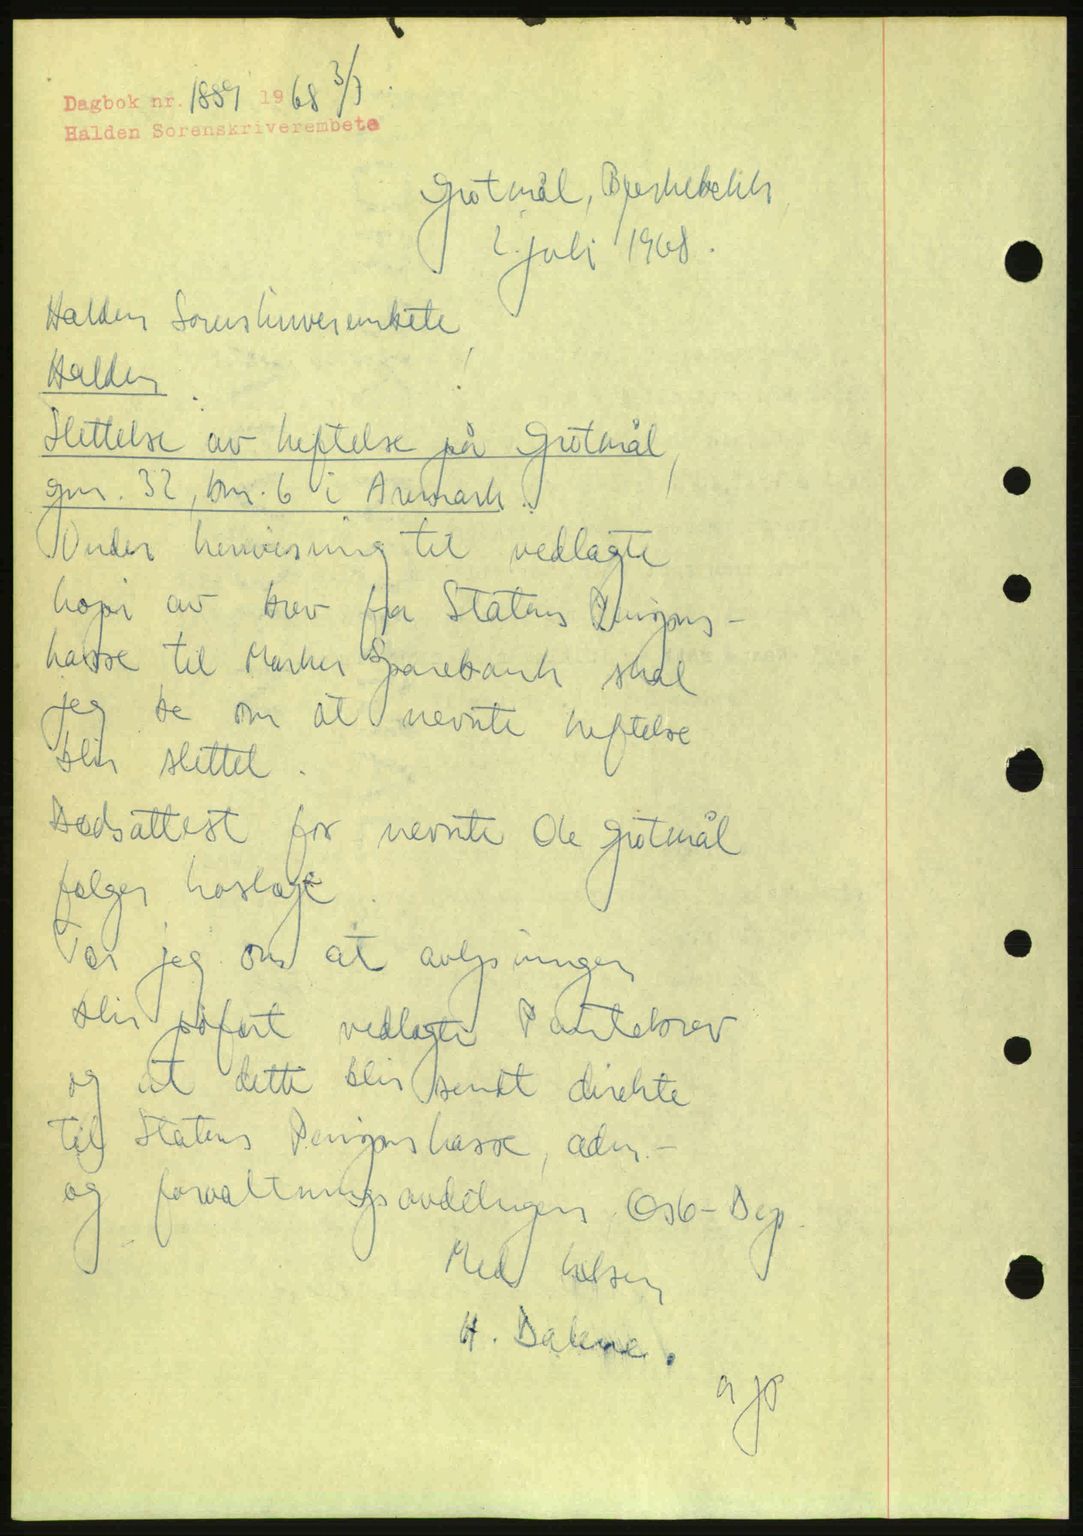 Dagbok nr. 1889 1968 3/7
Halden Sorenskriverembete
Grøtmål, Bjørkebekk
2. juli 1968.
Halden Sorenskriverembete,
Halden.
Slettelse av heftelse på Grøtmål,
gnr. 32, bnr. 6 i Aremark.
Under henvisning til vedlagte
kopi av brev fra Statens Pensjons-
kasse til Marker Sparebank skal
jeg be om at nevnte heftelse
blir slettet.
Dødsattest for nevnte Ole Grøtmål
følger hoslagt.
Ber jeg om at avlysningen
blir påført vedlagte Pantebrev
og at dette blir sendt direkte
til Statens Pensjonskasse, adm.-
og forvaltningsavdelingen, Oslo-Dep.
Med hilsen
H.